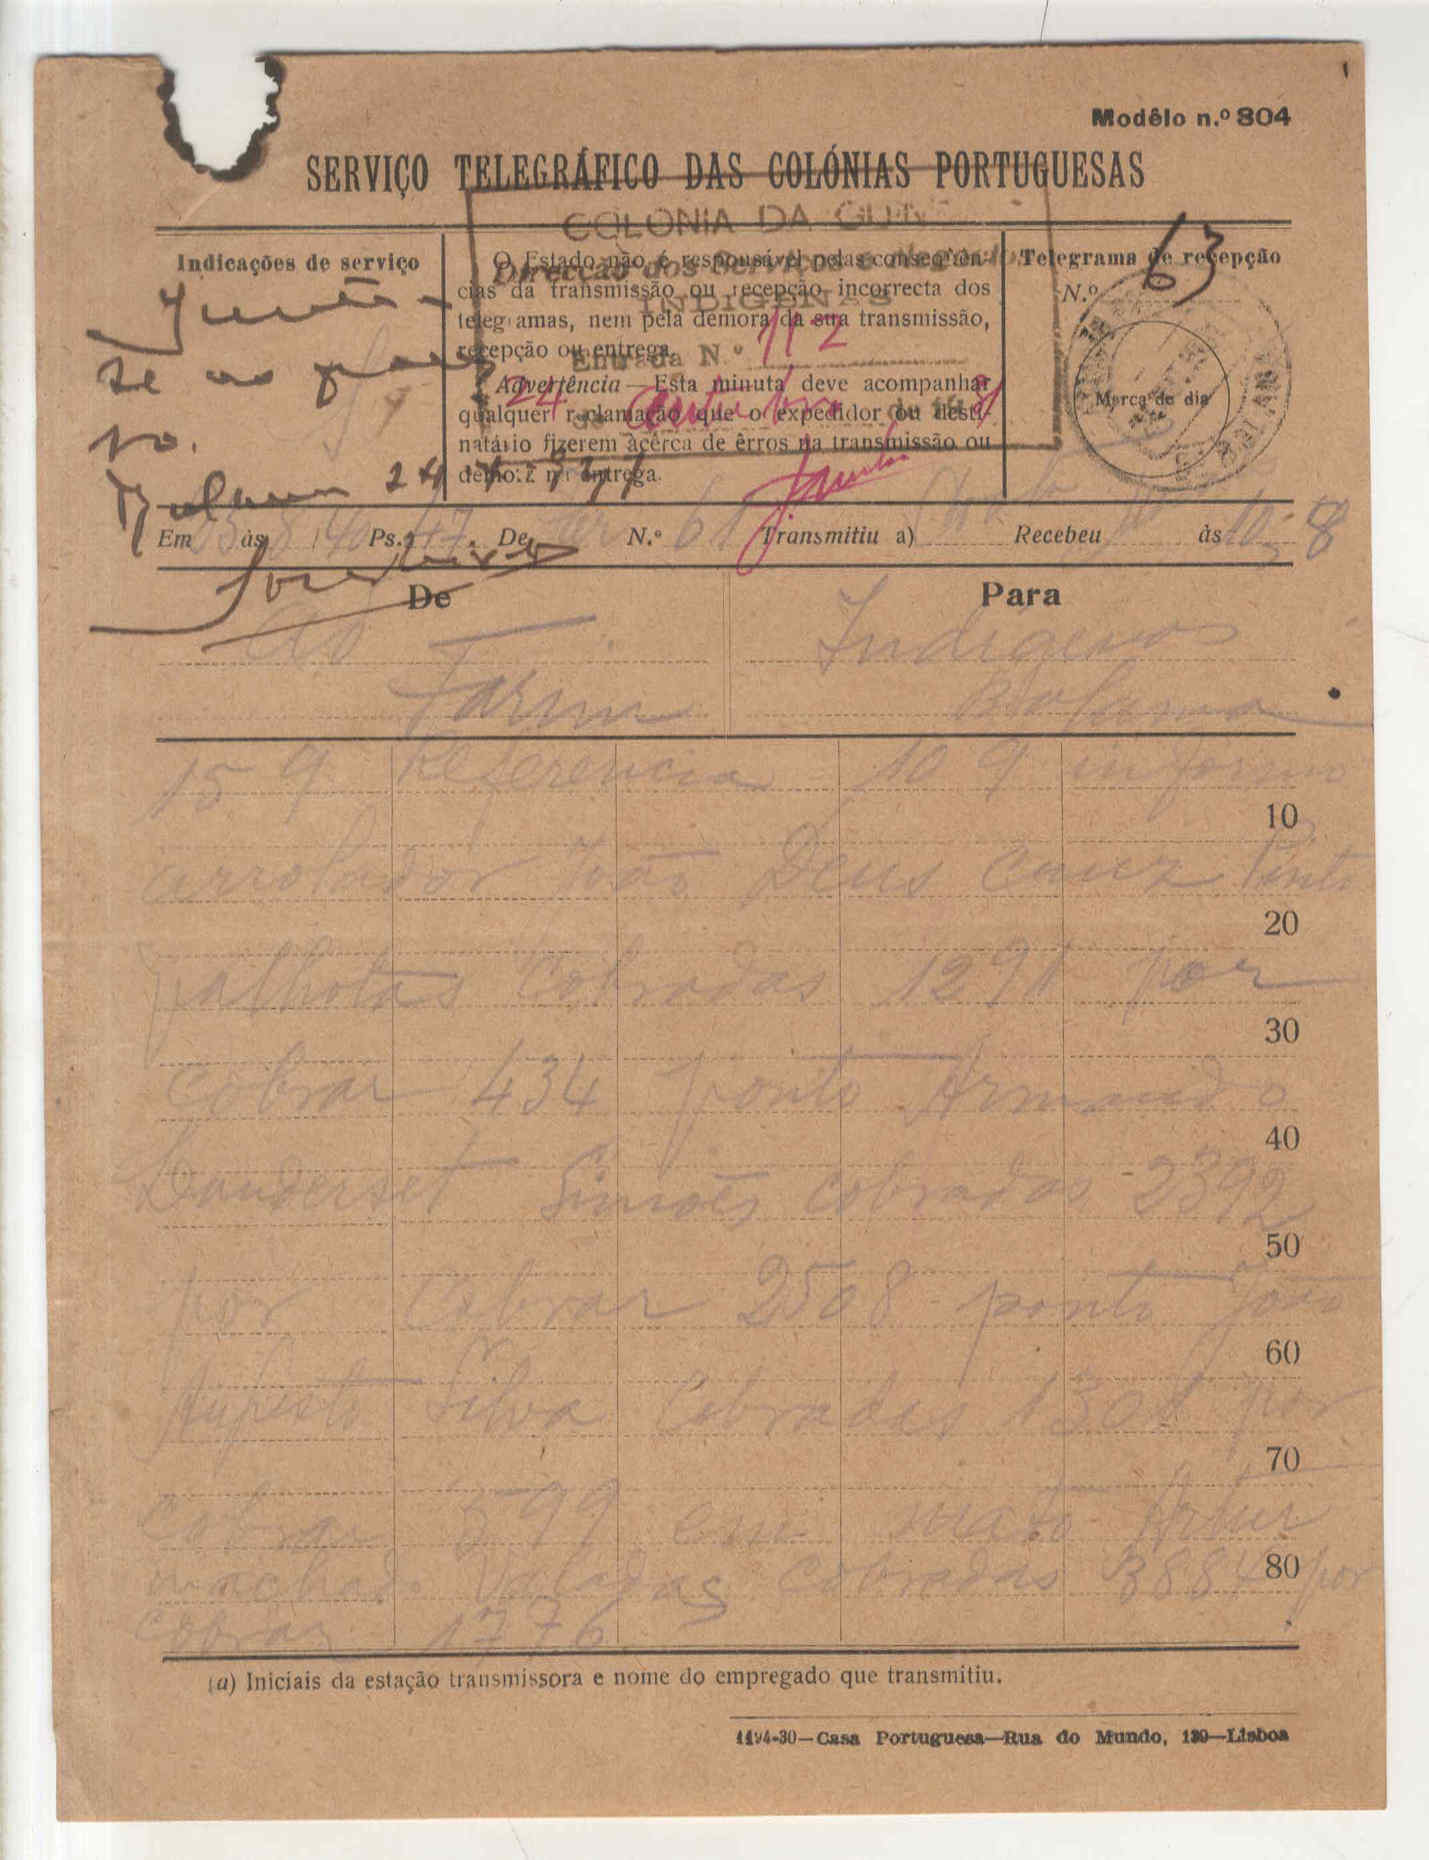 Modêlo n.º 804
SERVIÇO TELEGRÁFICO DAS COLÓNIAS PORTUGUESAS
COLONIA DA GUINÉ
Direcção dos Serviços e Negocios
INDIGENAS
Entrada N.º 112
24 de Outubro de 193
Indicações de serviço
Junte-
se ao
Bolama 24
O Estado não é responsável pelas conseqüên-
cias da transmissão ou recepção incorrecta dos
telegramas, nem pela demora da sua transmissão,
recepção ou entrega.
Advertência — Esta minuta deve acompanhar
qualquer reclamação que o expedidor ou desti-
natário fizerem àcêrca de êrros na transmissão ou
demora na entrega.
Telegrama de recepção
N.º 63
Marca de dia
Em às Ps. 47 De N.º 61 Transmitiu a) Recebeu às 10-8
De
Para
Ad
Farim
Indigenas
Bolama
15 9 Referencia 10 9 informo
10
arrolador João Deus Cruz Pinto
20
palhotas cobradas 1291 por
30
cobrar 434 ponto Armando
40
Simões cobradas 2392
50
por cobrar 2508 ponto João
60
Augusto Silva cobradas 1301 por
70
cobrar 599 em mato Artur
80
machado Valadas cobradas 3884 por
cobrar 1776
(a) Iniciais da estação transmissora e nome do empregado que transmitiu.
1194-30—Casa Portuguesa—Rua do Mundo, 139—Lisboa